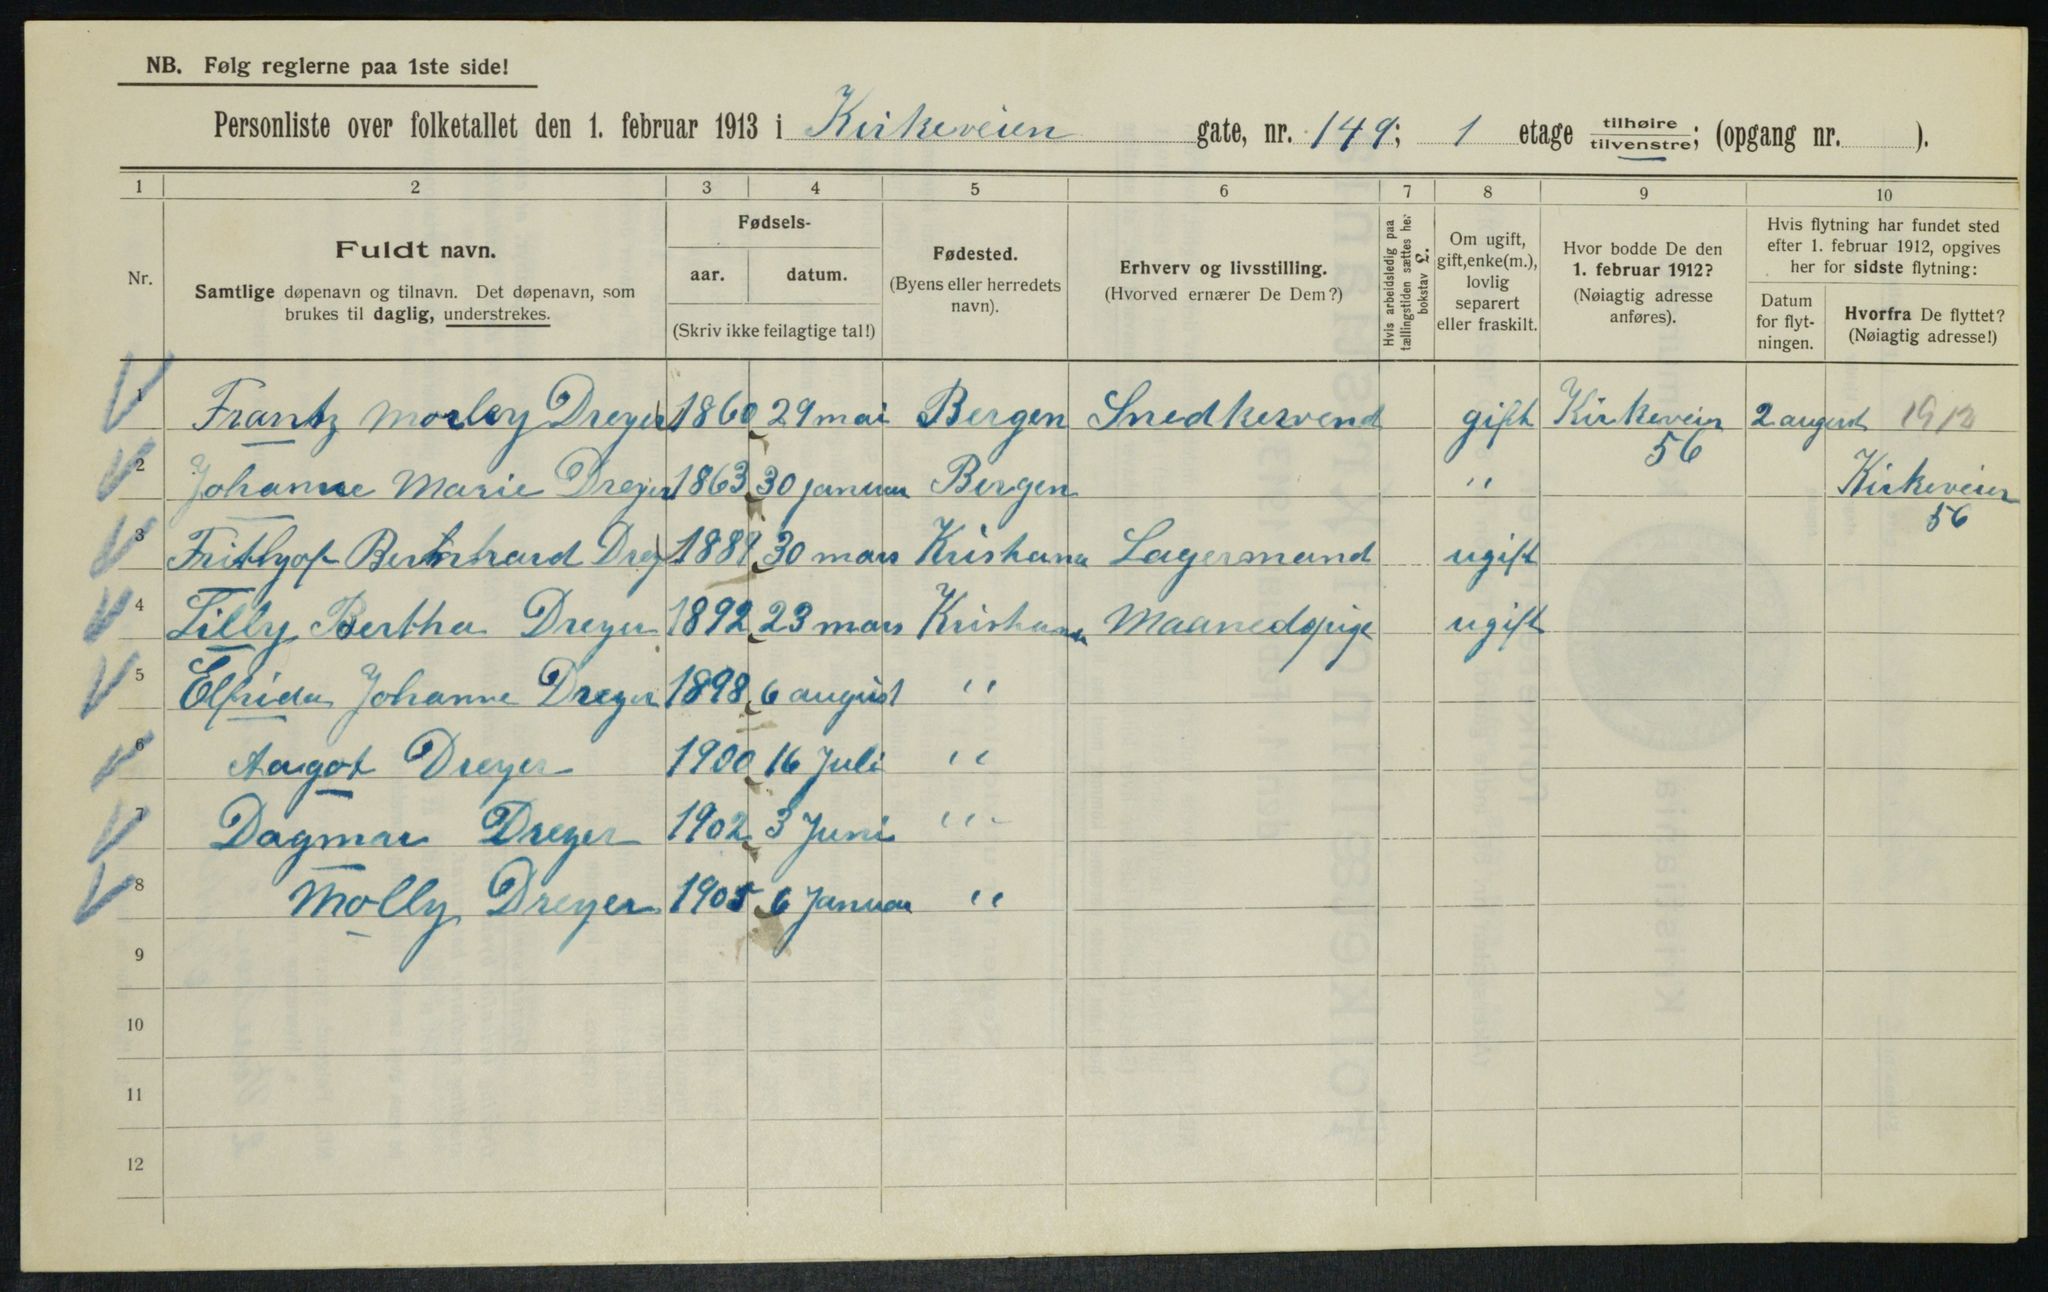 NB. Følg reglerne paa 1ste side!
Personliste over folketallet den 1. februar 1913 i Kirkeveien gate, nr. 149; 1 etage tilhøire / tilvenstre; (opgang nr. ).
1 2 3 4 5 6 7 8 9 10
Nr.
Fuldt navn.
Samtlige døpenavn og tilnavn. Det døpenavn, som
brukes til daglig, understrekes.
Fødsels-
aar. datum.
(Skriv ikke feilagtige tal!)
Fødested.
(Byens eller herredets
navn).
Erhverv og livsstilling.
(Hvorved ernærer De Dem?)
Hvis arbeidsledig paa
tællingstiden sættes her
bokstav L.
Om ugift,
gift, enke(m.),
lovlig
separert
eller fraskilt.
Hvor bodde De den
1. februar 1912?
(Nøiagtig adresse
anføres).
Hvis flytning har fundet sted
efter 1. februar 1912, opgives
her for sidste flytning:
Datum
for flyt-
ningen.
Hvorfra De flyttet?
(Nøiagtig adresse!)
1 Frantz Morley Dreyer 1860 29 mai Bergen Snedkersvend gift Kirkeveien 56 2 august 1912
2 Johanne Marie Dreyer 1863 30 januar Bergen " Kirkeveien 56
3 Frithjof Bernhard Drey 1889 30 mars Kristiania Lagermand ugift
4 Lilly Bertha Dreyer 1892 23 mars Kristiania Maanedspige ugift
5 Elfrida Johanne Dreyer 1898 6 august "
6 Aagot Dreyer 1900 16 Juli "
7 Dagmar Dreyer 1902 3 Juni "
8 Molly Dreyer 1905 6 Januar "
9
10
11
12